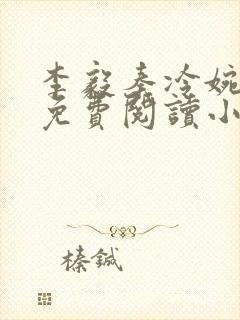 李毅秦冷婉
免費閱讀小
榛鍼